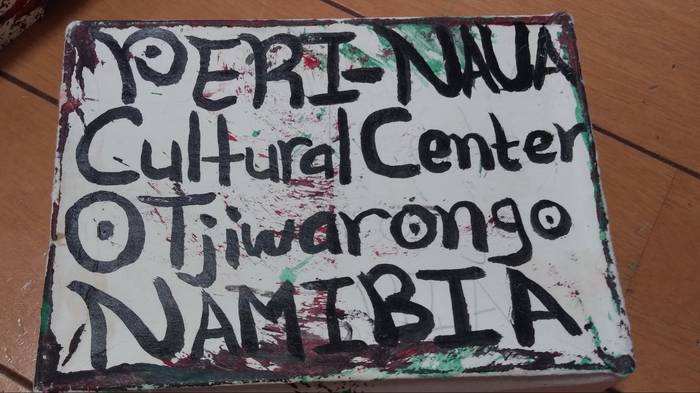 PERI-NAUA
Cultural Center
OTjiwarongo
NAMIBIA